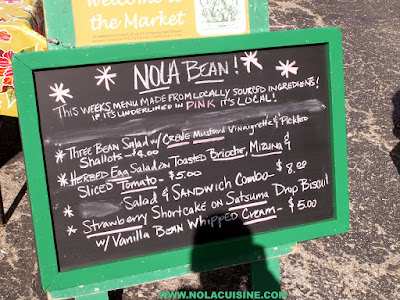 Welcome to
the Market
NOLA BEAN!
THIS WEEKS MENU MADE FROM LOCALLY SOURCED INGREDIENTS!
IF IT'S UNDERLINED IN PINK IT'S LOCAL!
* THREE BEAN SALAD W/ CREOLE MUSTARD VINAIGRETTE & PICKLED
SHALLOTS - $4.00
* HERBED EGG SALAD ON TOASTED BRIOCHE, MIZUNA &
SLICED TOMATO - $5.00
* SALAD & SANDWICH COMBO - $8.00
* STRAWBERRY SHORTCAKE ON SATSUMA DROP BISCUIT
W/ VANILLA BEAN WHIPPED CREAM - $5.00
WWW.NOLACUISINE.COM